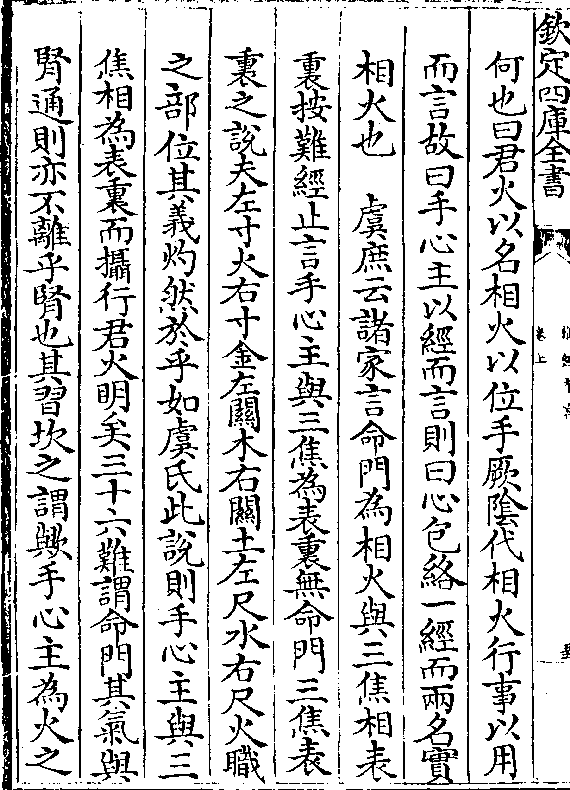 欽定四庫全書
卷上
何也曰君火以名相火以位手厥陰代相火行事以用
而言故曰手心主以經而言則曰心包絡一經而兩名實
相火也　虞庶云諸家言命門為相火與三焦相表
裏按難經止言手心主與三焦為表裏無命門三焦表
裏之說夫左寸火右寸金左關木右關土左尺水右尺火職
之部位其義灼然於乎如虞氏此說則手心主與三
焦相為表裏而攝行君火明矣三十六難謂命門其氣與
腎通則亦不離乎腎也其習坎之謂歟手心主為火之